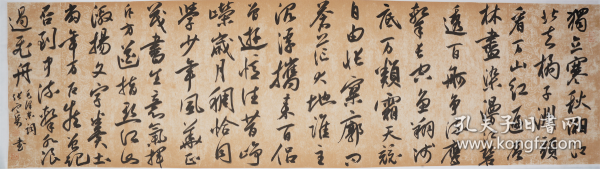 獨立寒秋湘江
北去橘子洲頭
看万山紅遍層
林盡染漫江碧
透百舸争流鷹
擊長空魚翔淺
底万類霜天競
自由悵寥廓問
蒼茫大地誰主
沉浮攜來百侶
曾遊憶往昔崢
嶸歲月稠恰同
學少年風華正
茂書生意氣揮
斥方遒指點江山
激揚文字糞土
當年万户侯曾記
否到中流擊水浪
遏飛舟
毛澤東詞
書
孔夫子旧书网